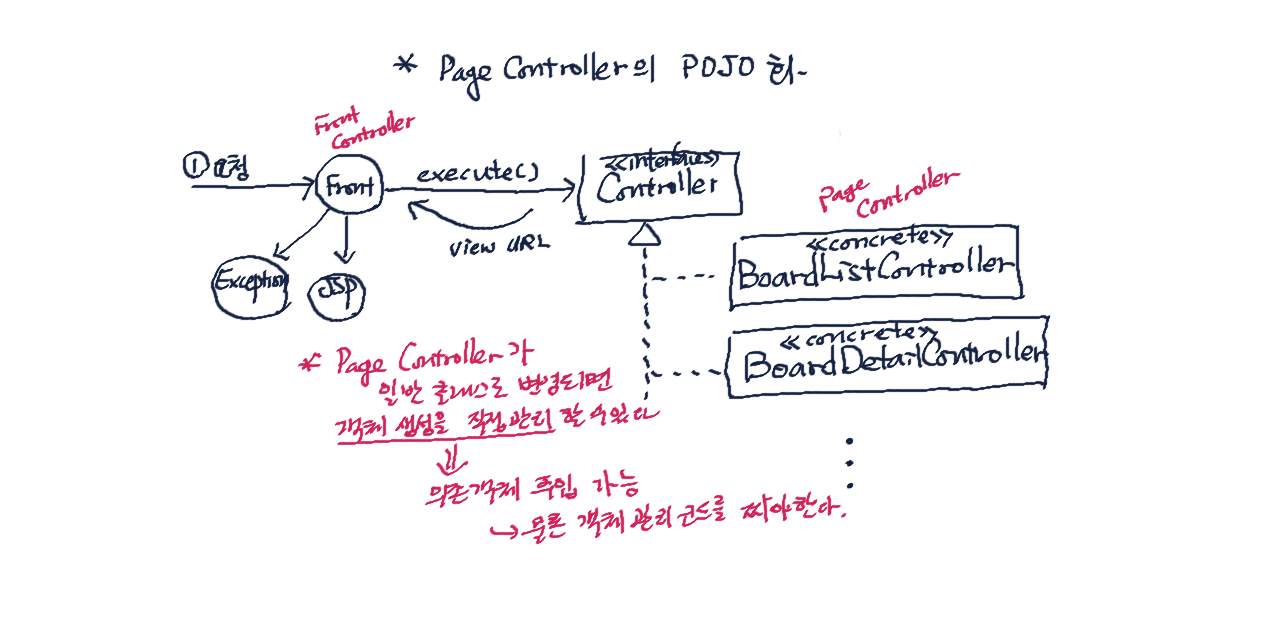 * Page Controller의 POJO 화.
Front
Controller
① 요청
Front
execute()
View URL
Exception
JSP
<<interface>>
Controller
Page
Controller
<<concrete>>
BoardListController
<<concrete>>
BoardDetailController
* Page Controller가
일반 클래스로 변경되면
객체 생성을 직접 관리 할 수 있다
의존객체 주입 가능
↳ 물론 객체 관리 코드를 짜야한다.